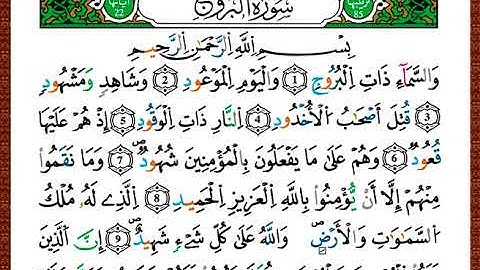 ترتيبها 85 سُورَةُ الْبُرُوجِ آياتها 22
بِسْمِ اللَّهِ الرَّحْمَٰنِ الرَّحِيمِ
وَالسَّمَآءِ ذَاتِ الْبُرُوجِ 1 وَالْيَوْمِ الْمَوْعُودِ 2 وَشَاهِدٍ وَمَشْهُودٍ
3 قُتِلَ أَصْحَابُ الْأُخْدُودِ 4 النَّارِ ذَاتِ الْوَقُودِ 5 إِذْ هُمْ عَلَيْهَا
قُعُودٌ 6 وَهُمْ عَلَىٰ مَا يَفْعَلُونَ بِالْمُؤْمِنِينَ شُهُودٌ 7 وَمَا نَقَمُوا
مِنْهُمْ إِلَّا أَنْ يُؤْمِنُوا بِاللَّهِ الْعَزِيزِ الْحَمِيدِ 8 الَّذِي لَهُ مُلْكُ
السَّمَاوَاتِ وَالْأَرْضِ ۚ وَاللَّهُ عَلَىٰ كُلِّ شَيْءٍ شَهِيدٌ 9 إِنَّ الَّذِينَ